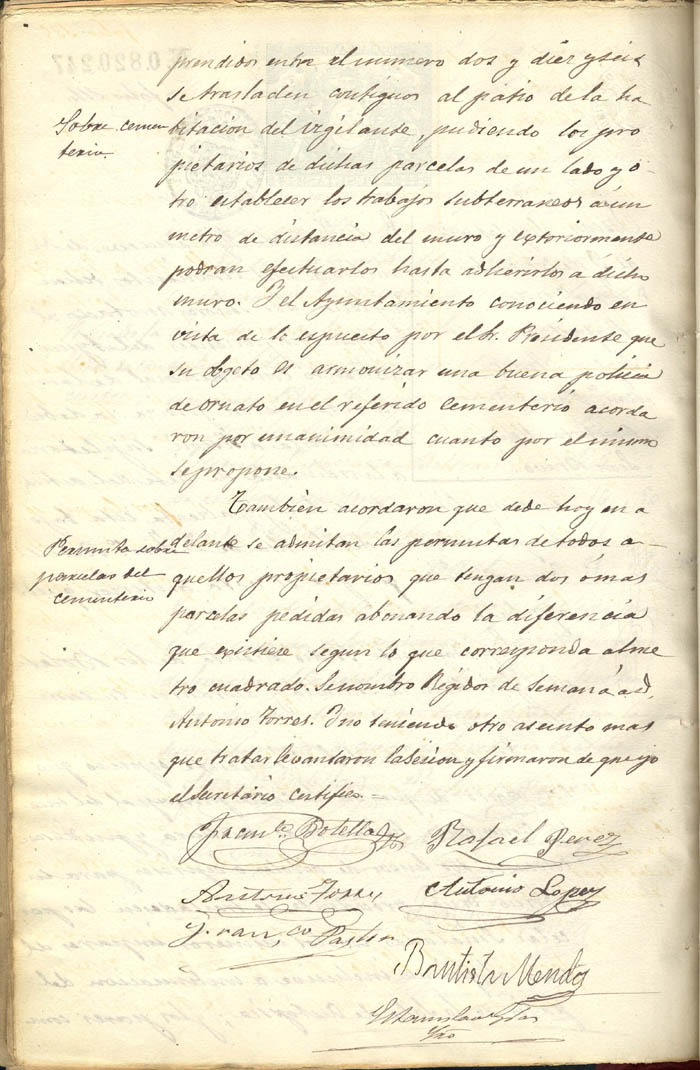 prendidos entre el numero dos y diez y seis
se trasladen contiguos al patio de la ha
Sobre cemen
terio.
bitacion del vigilante, pudiendo los pro
pietarios de dichas parcelas de un lado y o-
tro establecer los trabajos subterraneos á un
metro de distancia del muro y exteriormente
podran efectuarlos hasta adherirlos a dicho
muro. Y el Ayuntamiento conociendo en
vista de lo espuesto por el Sr. Presidente que
su objeto es armonizar una buena policia
de ornato en el referido cementerio acorda
ron por unanimidad cuanto por el mismo
se propone.
Tambien acordaron que desde hoy en a
delante se admitan las permutas de todos a-
Permuta sobre
parcelas del
cementerio
quellos propietarios que tengan dos ó mas
parcelas pedidas abonando la diferencia
que existiese segun lo que corresponda al me
tro cuadrado. Se nombro Regidor de semana a D.
Antonio Torres. Y no teniendo otro asunto mas
que tratar levantaron la sesion y firmaron de que yo
el Secretario certifico.=
Franco Botella
Rafael Perez
Antonio Torres
Antonio Lopez
Franco Pastor
Bautista Mendez
Estanislao
Srio
0.820.247